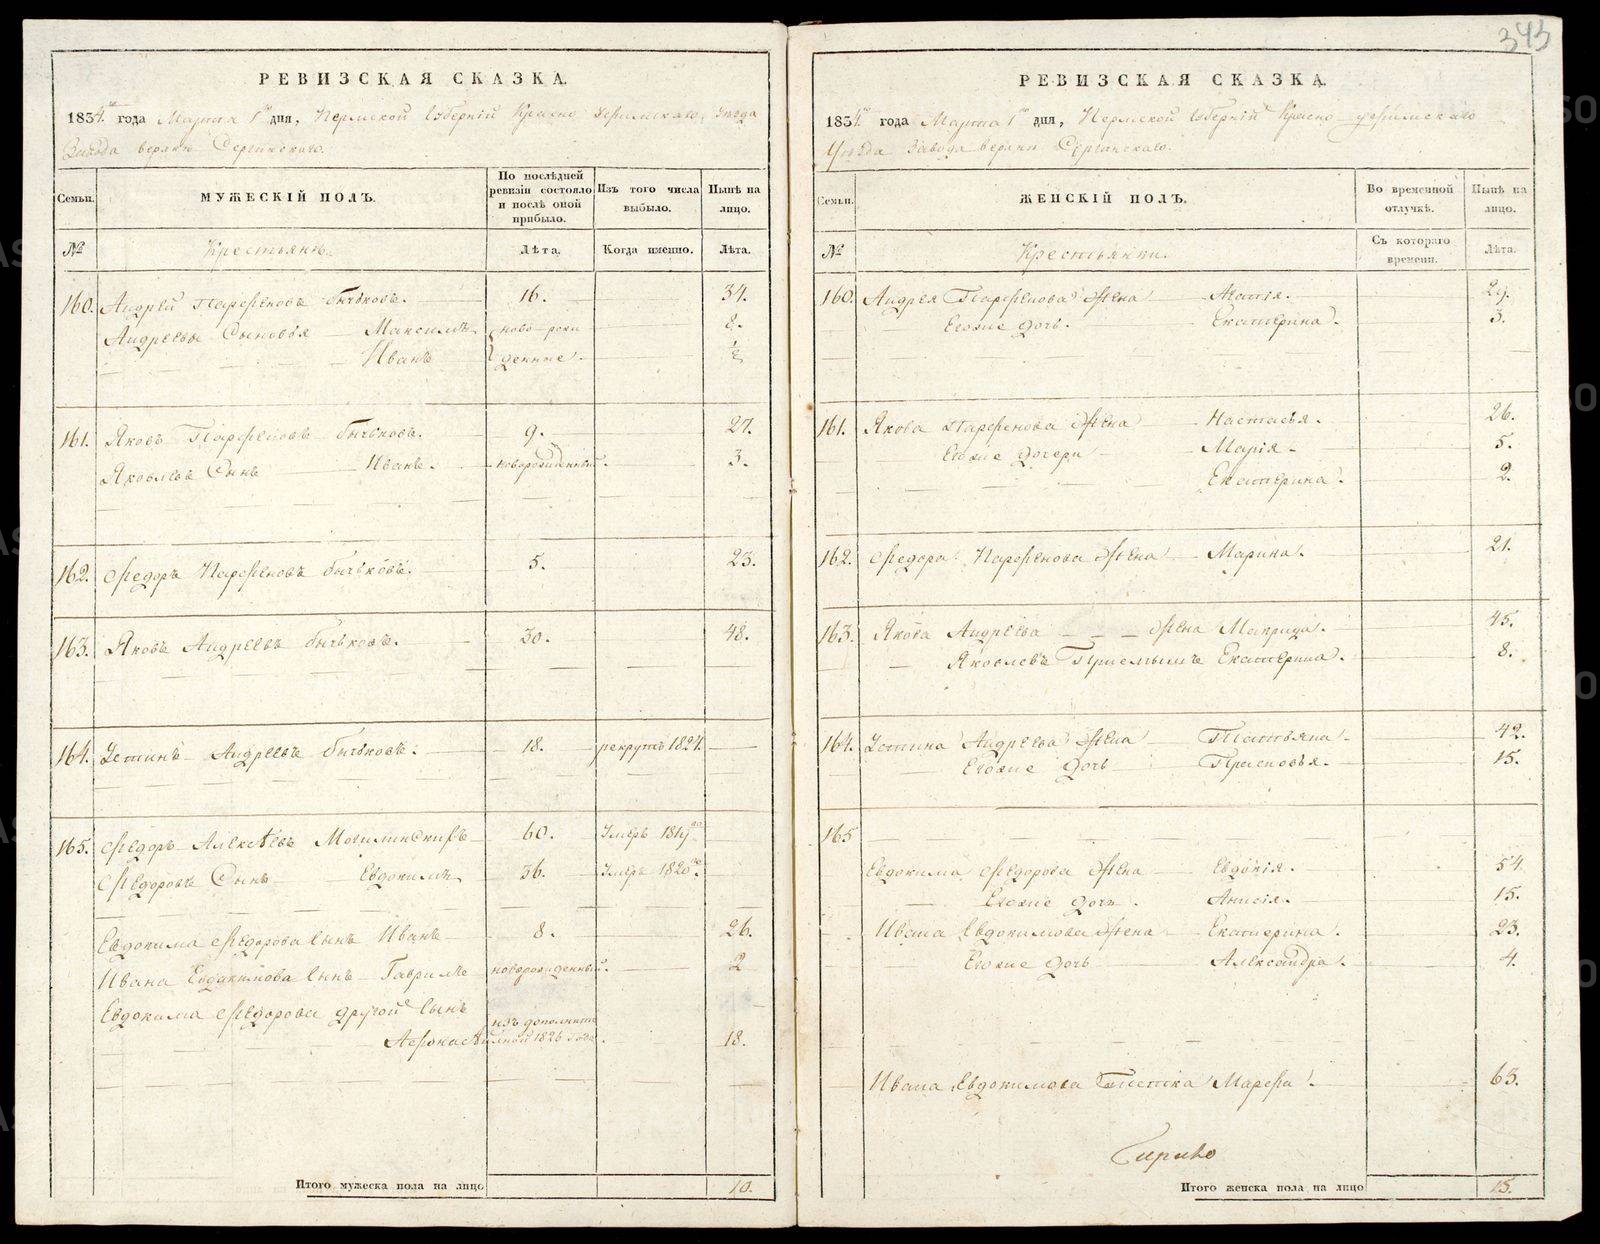 343
РЕВИЗСКАЯ СКАЗКА.
1834го года Марта 1го дня, Пермской Губернiи Красно Уфимскаго Уезда
Завода верхне Сергинскаго.
Семьи.
МУЖЕСКIЙ ПОЛЪ.
По послѣдней ревизiи состояло и послѣ оной прибыло.
Изъ того числа выбыло.
Нынѣ на лицо.
№
Крестьяне.
Лѣта.
Когда именно.
Лѣта.
160. Андрей Парфеновъ Бычковъ. 16. 34.
Андреевы Сыновья Максимъ ново рож 8.
Иванъ денные. ½
161. Яковъ Парфеновъ Бычковъ. 9. 27.
Яковлевъ Сынъ Иванъ. новорожденный. 3.
162. Федоръ Парфеновъ Бычковъ. 5. 23.
163. Яковъ Андреевъ Бычковъ. 30. 48.
164. Устинъ Андреевъ Бычковъ. 18. рекрутъ 1824.
165. Федоръ Алексѣевъ Могилинскихъ 60. Умеръ 1819го
Федоровъ Сынъ Евдокимъ 36. Умеръ 1820го.
Евдокима Федорова Сынъ Иванъ 8. 26.
Ивана Евдокимова Сынъ Гаврило новорожденный. 2
Евдокима Федорова другой Сынъ изъ дополнит
Афонасей ельной 1826 года. 18.
Итого мужеска пола на лицо 10.
РЕВИЗСКАЯ СКАЗКА.
1834го года Марта 1го дня, Пермской Губернiи Красно уфимскаго
Уезда Завода верхне Сергинскаго.
Семьи.
ЖЕНСКIЙ ПОЛЪ.
Во временной отлучкѣ.
Нынѣ на лицо.
№
Крестьянки.
Съ котораго времени.
Лѣта.
160. Андрея Парфенова Жена Агапiя. 29.
Егоже дочь. Екатерина. 3.
161. Якова Парфенова Жена Настасья. 26.
Егоже дочери Марiя 5.
Екатерина. 2.
162. Федора Парфенова Жена Марина. 21.
163. Якова Андреева Жена Маприда. 45.
Яковлевъ Приемышъ Екатерина. 8.
164. Устина Андреева Жена Татьяна. 42.
Егоже Дочь Прасковья. 15.
165
Евдокима Федорова Жена Евдокiя. 54
Егоже дочь. Анисiя. 15.
Ивана Евдокимова Жена Екатерина. 23.
Егоже дочь Александра. 4.
Ивана Евдокимова Тетка Марфа. 63.
Итого женска пола на лицо 15.